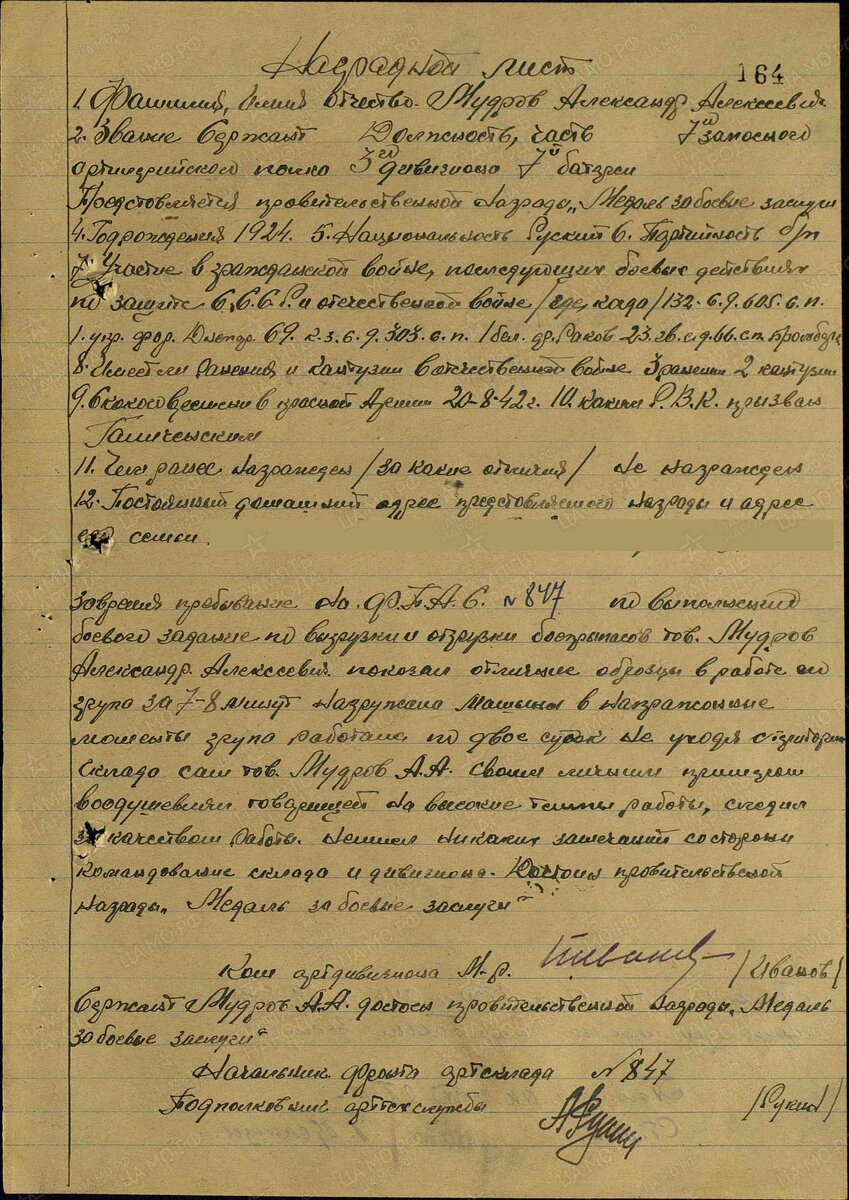 Наградной лист
164
1. Фамилия, Имия отчество. Мудров Александр Алексеевич
2. Звание Сержант Должность, часть 7й запосного
артилерийского полка 3го дивизиона 7й батареи
Предстовляется провительственной Награды „Медаль за боевые заслуги
4. Год рождения 1924. 5. Национальность Руский 6. Партийность б/п
7. Участие в гражданской войне, последующих боевых действиях
по защите С.С.С.Р. и отечественной войне /где, када/ 132. с.д. 605. с.п.
1. укр. фор. Днепр. 69. к.з. с.д. 303. с.п. 1 бел. др.
8. Имеет ли ранения и кантузии в отечественной войне 3 ранения 2 кантузии
9. С какого времени в красной Армии 20-8-42 г. 10. Каким Р.В.К. призван
Галиченским
11. Чем ранее награжден /за какие отличия/ Не награжден
12. Постоянный домашний адрес представляемого Награды и адрес
его семьи.
За время пребывание на. ф.Г.А.С. №847 по выполнению
боевого задание по выгрузки и отгрузки боеприпасов тов. Мудров
Александр. Алексеевич. показал отличные образцы в работе его
група за 7-8 минут нагружала машины в напряжонные
моменты група работала по двое суток не уходя с територии
склада сам тов. Мудров А.А. своим личным примером
воодушевлял товарищей на высокие темпы работы, следил
за качеством работы. Неимел никаких замечаний со стороны
командование склада и дивизиона. Достоин провительственной
награды „Медаль за боевые заслуги“
Ком артдивизиона М-р. /Иванов/
Сержант Мудров А.А. достоин провительственной награды „Медаль
за боевые заслуги“
Начальник фронта артсклада №847
Подполковник артслужбы